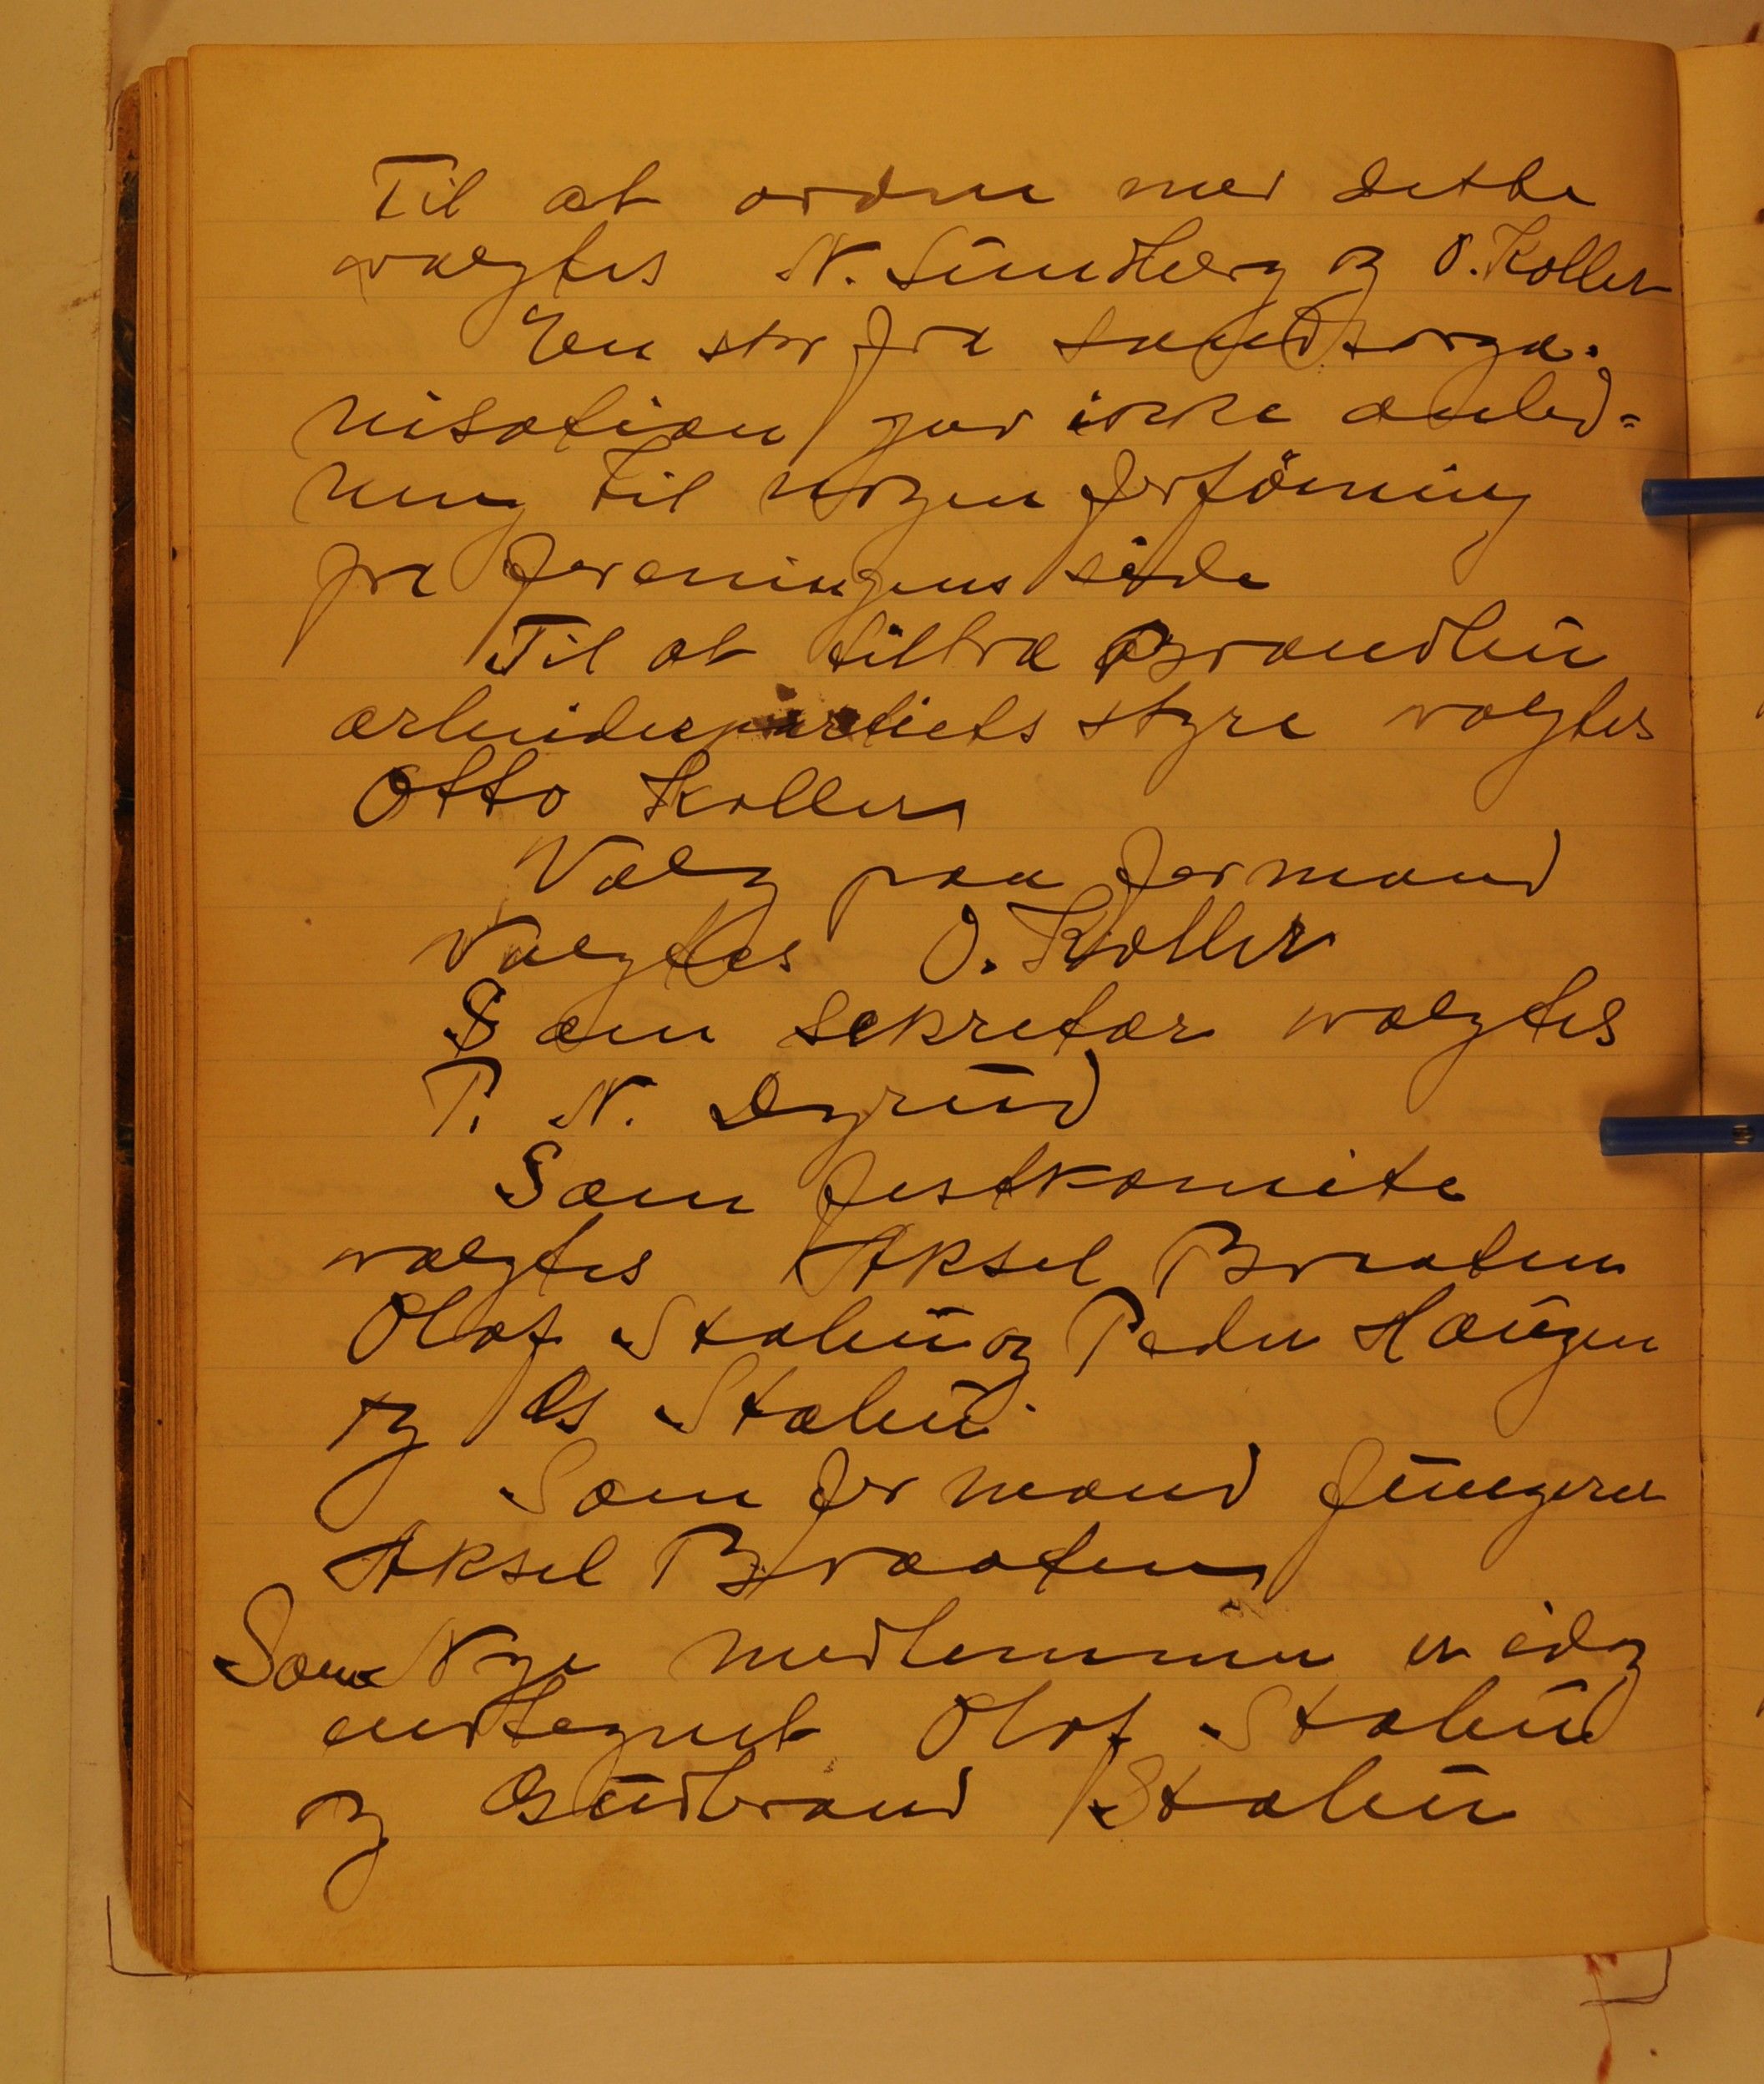 Til at ordne med dette
valgtes N. Sundberg og O. Koller
En skr fra Landsorga-
nisation gav ikke anled-
ning til nogen forföining
fra foreningens side
Til at tiltræ Brandbu
arbeiderpartiets styre valgtes
Otto Koller
Valg paa formand
Valgtes O. Koller
Som sekretær valgtes
P. N. Dynud
Som festkomite
valgtes Aksel Braaten
Olaf Stabu og Peder Haugen
og Gs Stabu.
Som formand fungerer
Aksel Braaten
Som Nye medlemmer er idag
indtegnet Olaf Stabu
og Gudbrand Stabu